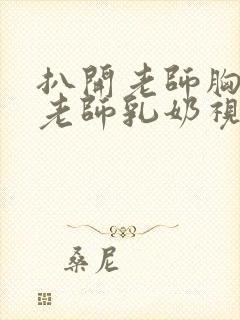 扒開老師胸
老師乳奶視
桑尼